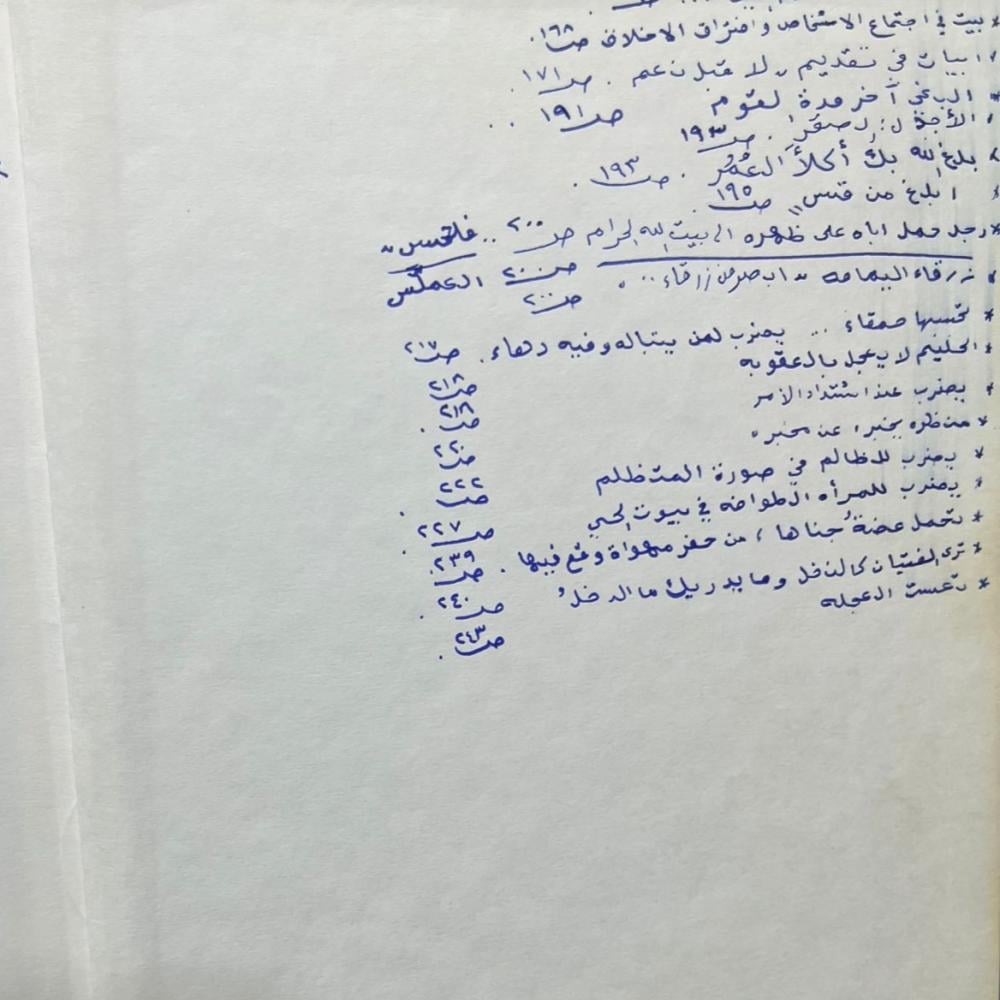 * بيت في اجتماع الاشخاص وافتراق الاخلاق ص١٦٨.
* ابيات في تقديم "لا قبل نعم. ص١٧١.
* البغي آخر مدة لقوم ص١٩١ ..
* الأجدل: الصقر. ص١٩٣
* بلغ الله بك أكلأ العُمُر. ص١٩٣.
* ابلغ من قس" ص١٩٥.
* رجل حمل اباه على ظهره الى بيت الله الحرام ص٢٠٠ .. العملّس
* زرقاء اليمامه " ابصر من زرقاء.." ص٢٠٠
ص٢٠٠
* تحسبها حمقاء .. يضرب لمن يتباله وفيه دهاء. ص٢١٧
* الحليم لا يعجل بالعقوبه ص٢١٨
* يضرب عند اشتداد الأمر ص٢١٨.
* منظره يخبر، عن مخبره ص٢٢٠
* يضرب للظالم في صورة المتظلم ص٢٢٢.
* يضرب للمرأه الطوافه في بيوت الحي ص٢٢٧.
* تحمل عضةُ جناها، من حفر مهواة وقع فيها. ص٢٣٩.
* ترى الفتيان كالنخل وما يدريك ما الدخلُ ص٢٤٠.
* تعست العجله ص٢٤٣.